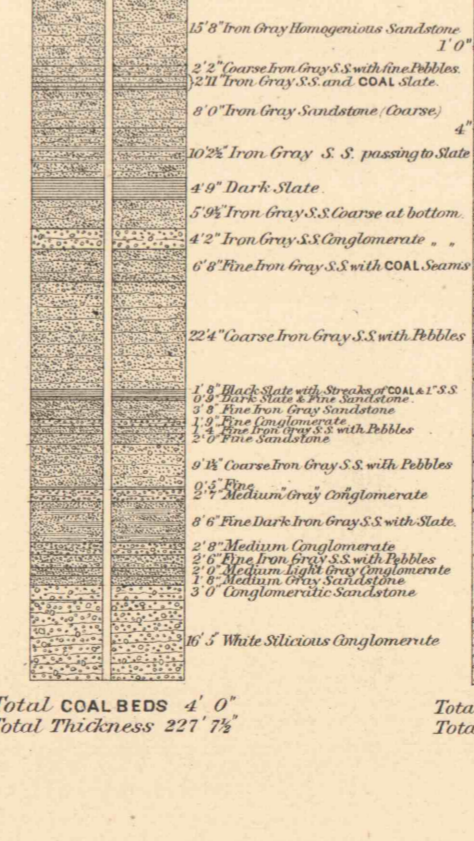 15' 8" Iron Gray Homogenious Sandstone
1' 0"
2' 2" Coarse Iron Gray S.S. with fine Pebbles.
2' 11" Iron Gray S.S. and COAL Slate.
8' 0" Iron Gray Sandstone (Coarse)
4"
10' 2½" Iron Gray S. S. passing to Slate
4' 9" Dark Slate.
5' 9½" Iron Gray S.S. Coarse at bottom.
4' 2" Iron Gray S.S. Conglomerate " "
6' 8" Fine Iron Gray S.S. with COAL Seams
22' 4" Coarse Iron Gray S.S. with Pebbles
1' 8" Black Slate with Streaks of COAL & 1" S.S.
0' 9" Dark Slate & Fine Sandstone.
3' 8" Fine Iron Gray Sandstone
1' 9" Fine Conglomerate
1' 4" Fine Iron Gray S.S. with Pebbles
2' 0" Fine Sandstone
9' 1½" Coarse Iron Gray S.S. with Pebbles
0' 5" Fine " " "
2' 7" Medium Gray Conglomerate
8' 6" Fine Dark Iron Gray S.S. with Slate.
2' 8" Medium Conglomerate
2' 6" Fine Iron Gray S.S. with Pebbles
2' 0" Medium Light Gray Conglomerate
1' 8" Medium Gray Sandstone
3' 0" Conglomeratic Sandstone
16' 5" White Silicious Conglomerate
Total COAL BEDS 4' 0"
Total Thickness 227' 7½"
Tota
Tota